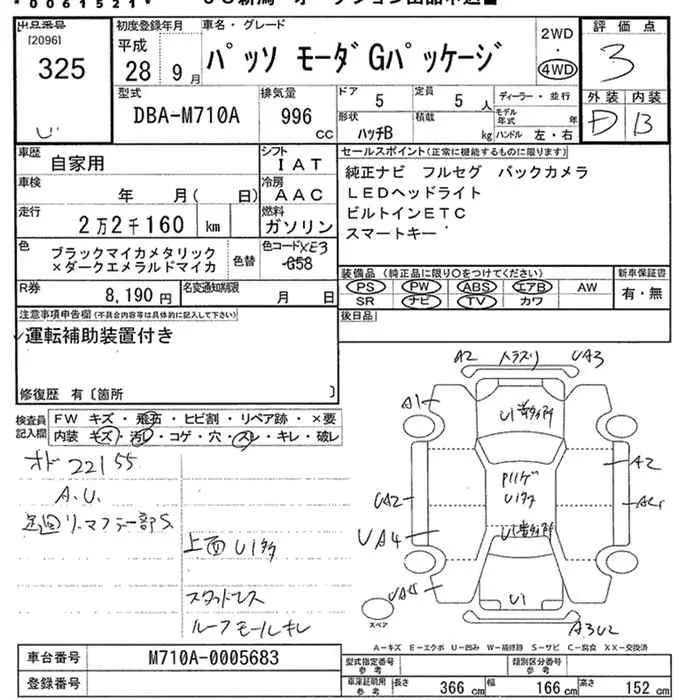 *0061521*
出品番号 初度登録年月 車名・グレード 2WD 評価点
[2096] 平成
325 28年 9月 パッソ モーダGパッケージ ・ 4WD 3
型式 排気量 ドア 定員 ディーラー・並行 外装 内装
DBA-M710A 996 cc 5 5人 モデル年式 年 D B
形状 積載
ハッチB kg ハンドル 左・右
車歴 シフト セールスポイント(正常に機能するものに限ります)
自家用 IAT 純正ナビ フルセグ バックカメラ
車検 冷房 LEDヘッドライト
年 月( 日) AAC ビルトインETC
走行 燃料 スマートキー
2万2千160 km ガソリン
色 色コード XE3
ブラックマイカメタリック 色替 G58
×ダークエメラルドマイカ
装備品(純正品に限り○をつけてください) 新車保証書
PS PW ABS エアB AW 有・無
SR ナビ TV カワ
R券 名変通知期限
8,190円 月 日
後日品
注意事項申告欄(不具合内容等は具体的に記入して下さい)
運転補助装置付き
修復歴 有〔箇所 〕
検査員記入欄
FW キズ・飛石・ヒビ割・リペア跡・×要
内装 キズ・汚レ・コゲ・穴・スレ・キレ・破レ
オド 22155
A.U.
上面 U1多
スタットレス
ルーフモールキレ
A2 UA3
A1
U1
A2
UA2
UA4
U1
A3U2
スペア
A-キズ E-エクボ U-凹み W-補修跡 S-サビ C-腐食 XX-交換済
車台番号 M710A-0005683
登録番号
型式指定番号 参考 類別区分番号 参考
車庫証明用 参考 長さ 366 cm 幅 166 cm 高さ 152 cm